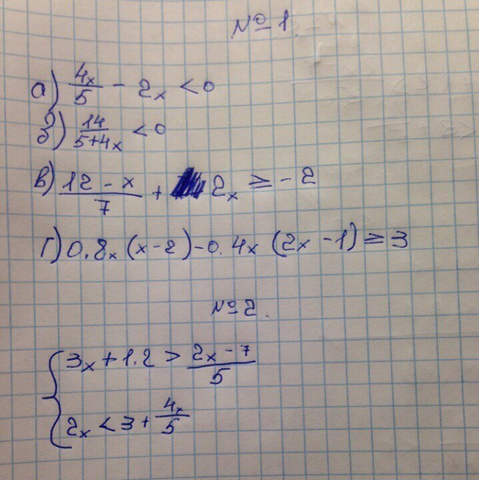 №1
а) 4x/5 - 2x < 0
б) 14/5+4x < 0
в) 12-x/7 + 2x ≥ -2
г) 0.8x (x-2) - 0.4x (2x-1) ≥ 3
№2.
{ 3x + 1.2 > 2x-7/5
2x < 3 + 4x/5